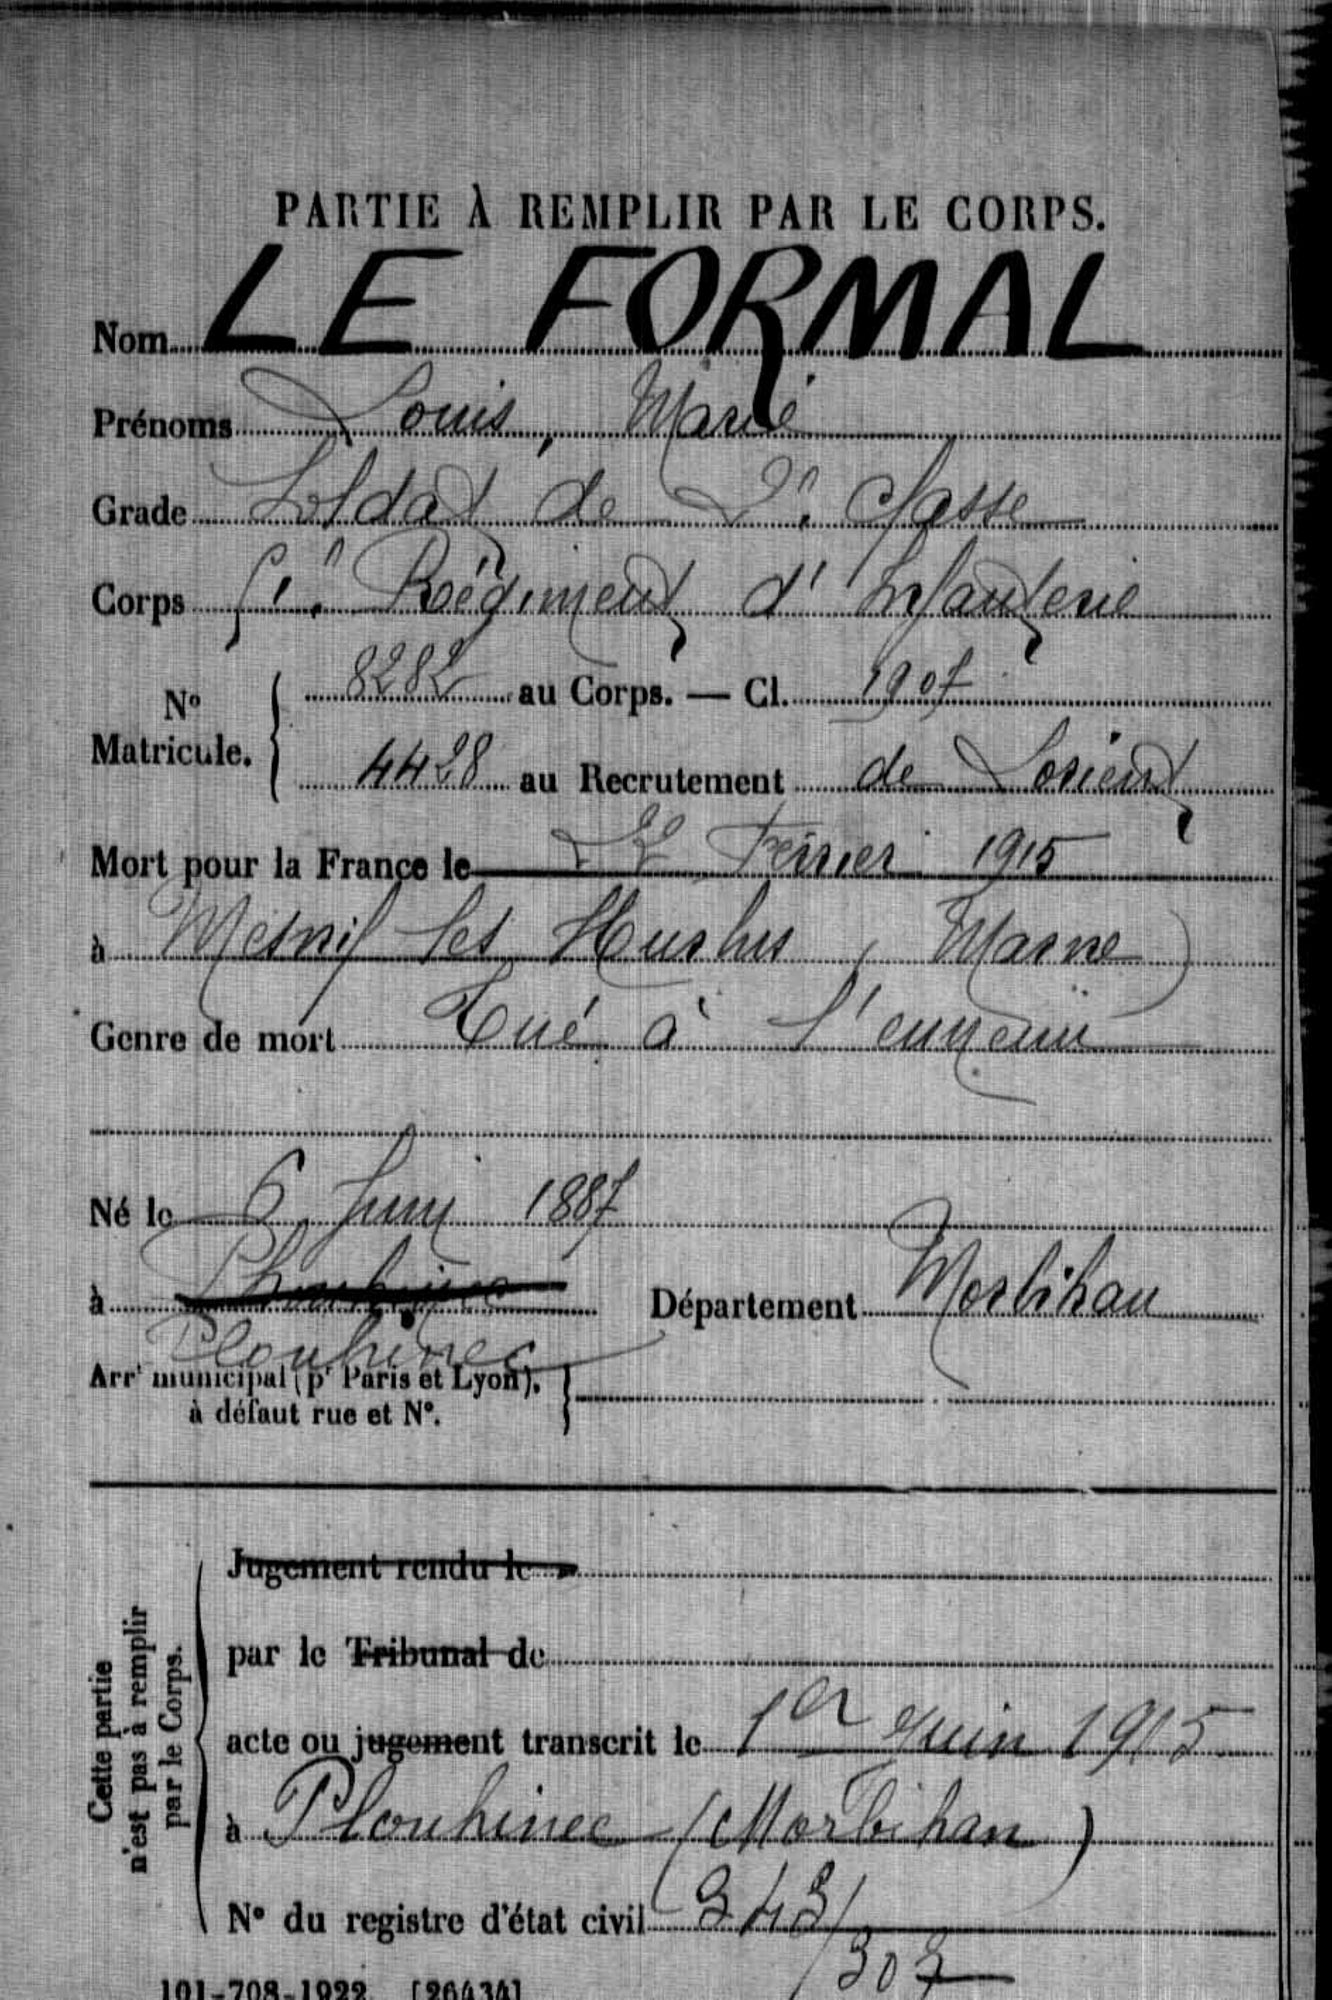 PARTIE À REMPLIR PAR LE CORPS.
Nom LE FORMAL
Prénoms Louis, Marie
Grade Soldat de 2e Classe
Corps Régiment d'Infanterie
No Matricule. 8282 au Corps. — Cl. 1907
4428 au Recrutement de Lorient
Mort pour la France le 22 Février 1915
à Mesnil les Hurlus, Marne)
Genre de mort Tué à l'ennemi
Né le 6 Juin 1887
à Plouhinec Département Morbihan
Plouhinec
Arrt municipal (pr Paris et Lyon),
à défaut rue et N°.
Cette partie
n'est pas à remplir
par le Corps.
Jugement rendu le
par le Tribunal de
acte ou jugement transcrit le 1er Juin 1915
à Plouhinec (Morbihan)
N° du registre d'état civil 343/
307
101-708-1922. [26434]